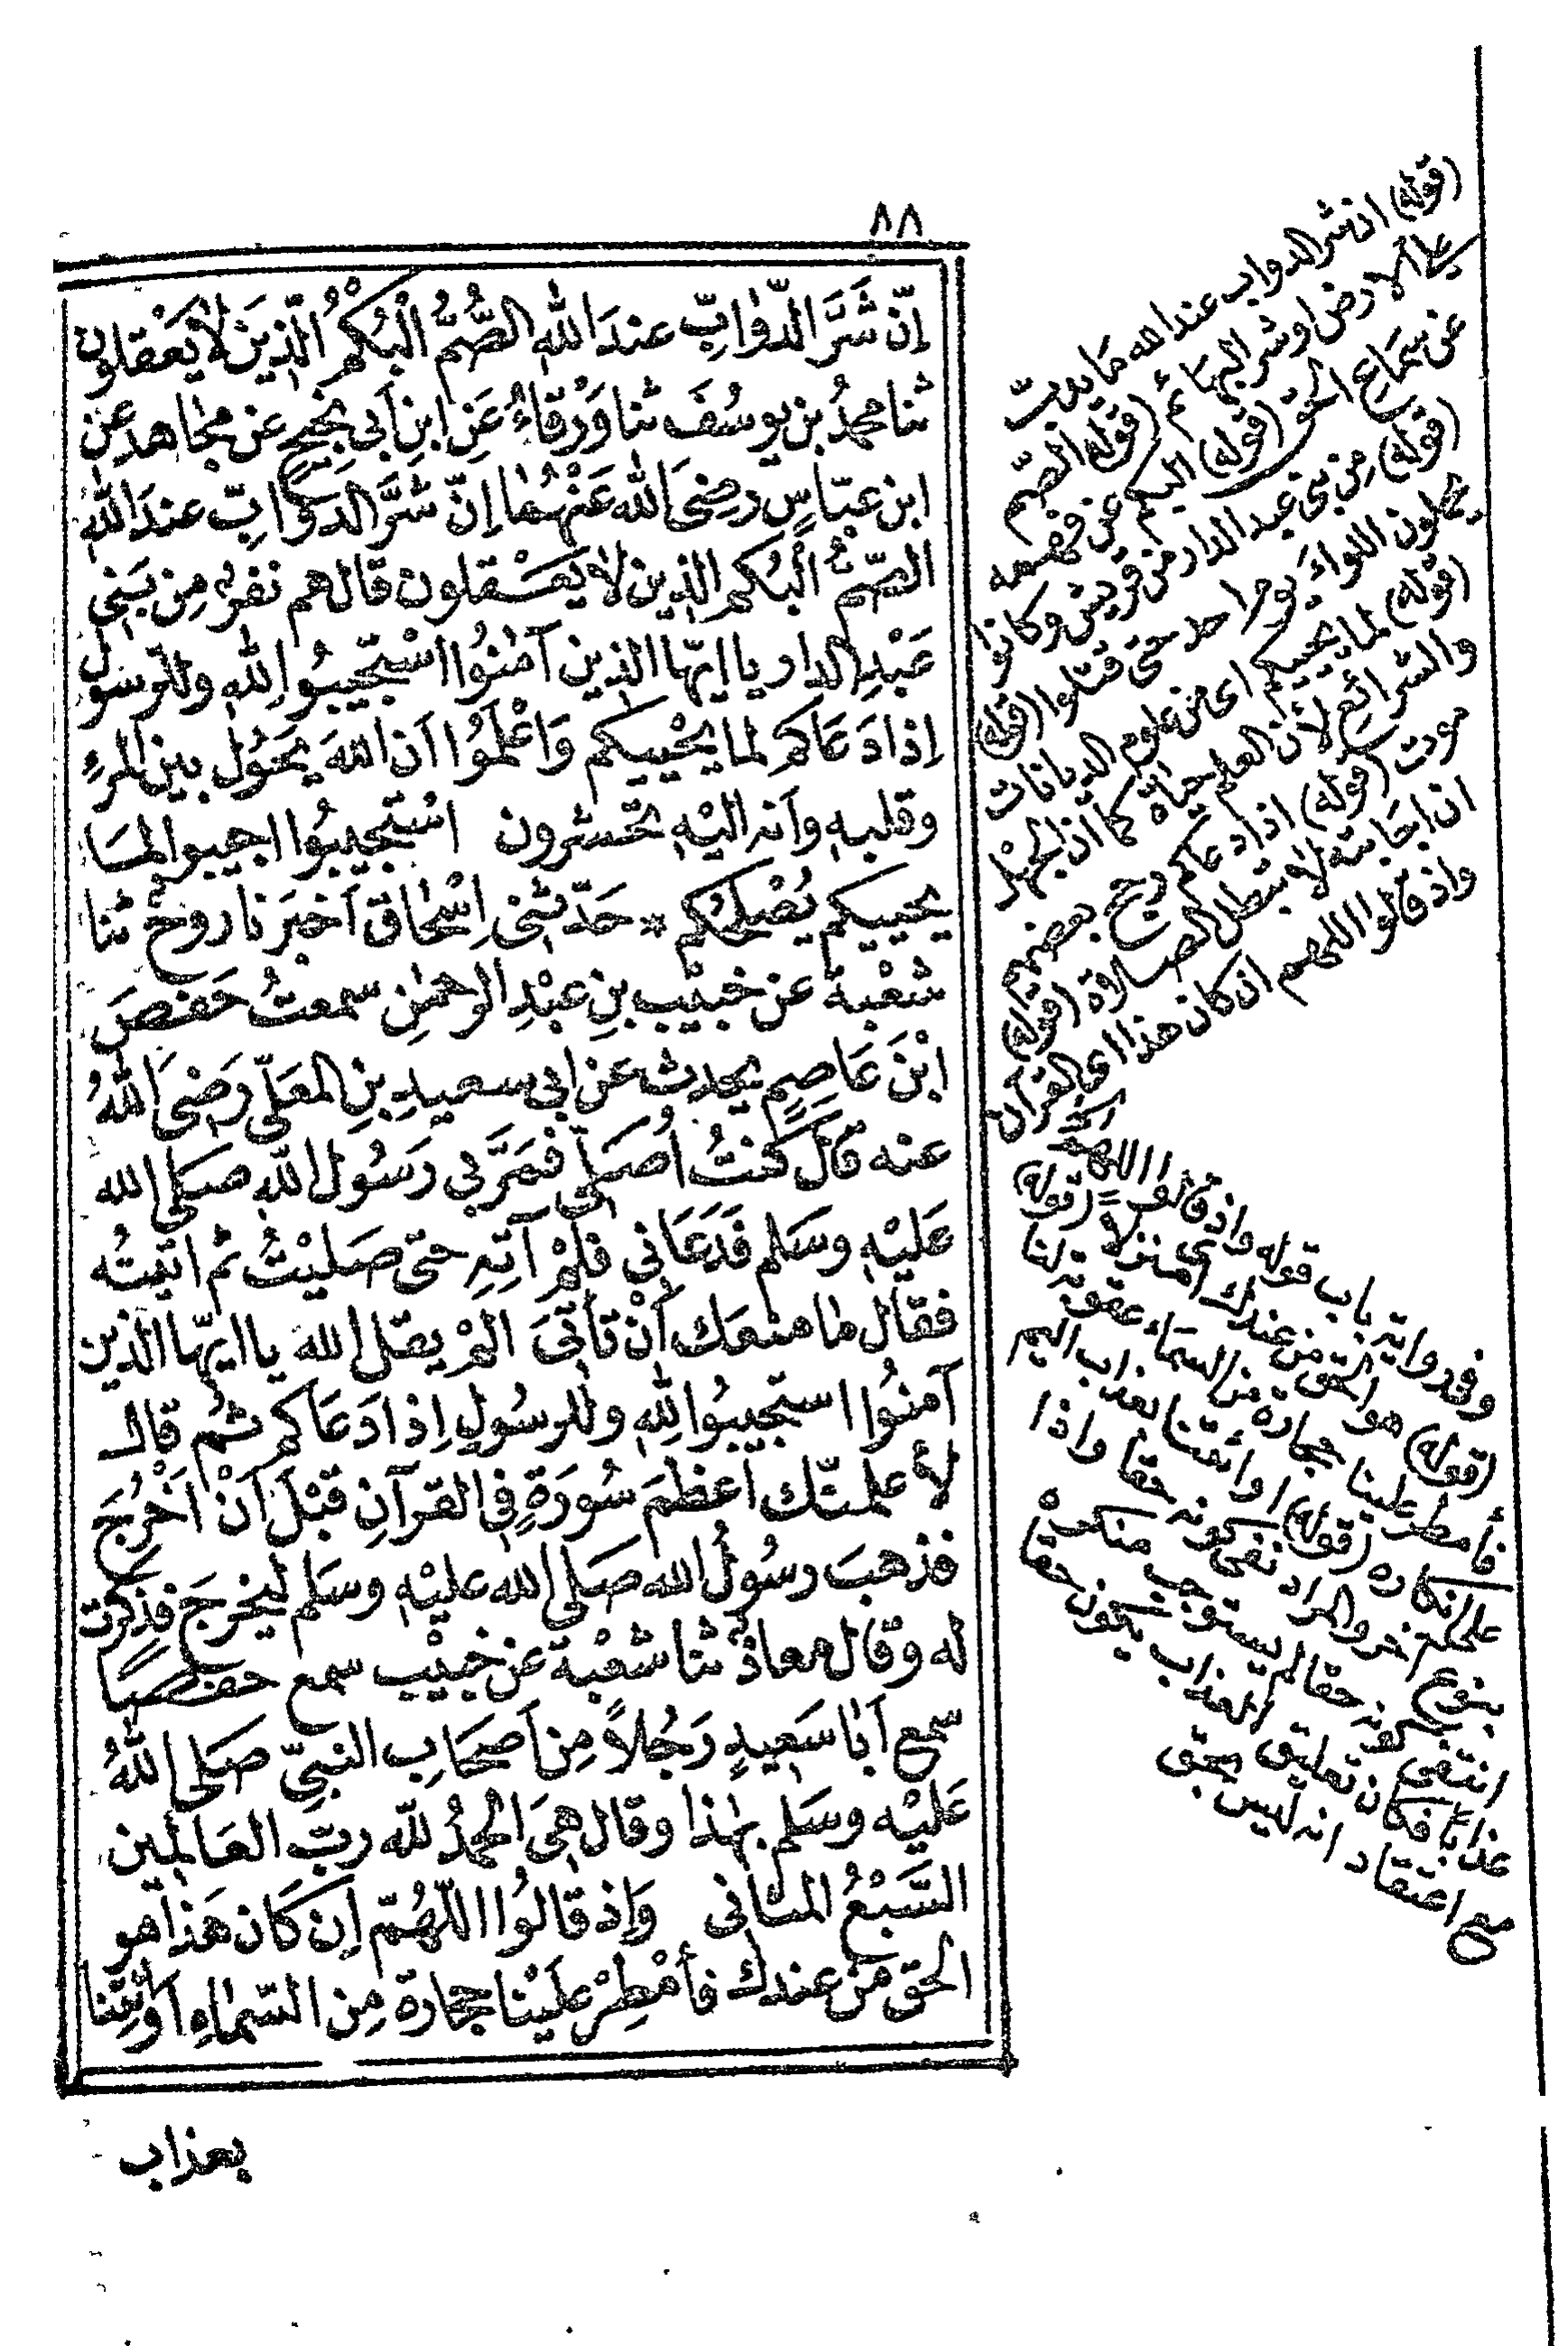 ٨٨
إنّ شَرَّ الدّوَابِّ عندَ اللهِ الصُّمُّ الْبُكْمُ الَّذِينَ لَا يَعْقلون
ثنا محمدُ بن يوسُفَ ثنا وَرْقاءُ عَنِ ابنِ اَبى نجيحٍ عن مجاهد عن
ابن عبّاسٍ رضِىَ الله عَنْهُمَا إنّ شَرَّ الدوَابِّ عندَ اللهِ
الصّمُّ الْبُكم الذين لا يعْقلون قال هم نفر مِن بَنى
عَبْدِ الدار يا ايّها الذين آمنُوا اسْتجيبُوا للهِ وللرسول
اِذا دَعَاكم لما يحْييكم وَاعْلمُوا اَن اللهَ يَحُول بين المرءِ
وقلبهِ وَاَنه اليْهِ تحشرون اسْتجيبُوا اجيبوا لما
يحييكم يُصْلحكم * حَدّثنى اِسْحاق اَخبَرنا روحٌ ثنا
شعْبة عن خبيْب بنِ عبْدِ الرحمٰنِ سمعتُ حَفصَ
ابْنَ عَاصِمٍ يحدث عَن ابى سعيدِ بنِ المعَلّى رَضىَ اللهُ
عنه قَالَ كنتُ اُصَلّى فمَرَّ بى رَسُول اللهِ صَلى الله
عَليْهِ وسَلم فَدَعَانى فلمْ آتِهِ حتى صَليْتُ ثم اتيتُه
فقال ما منعك اَنْ تأتىَ المْ يقل الله يا ايّها الذين
آمنُوا استجيبُوا للهِ وللرسُولِ اِذا دَعَاكم ثمُ قال
لأعلمنّك اَعظمَ سُورَةٍ فى القرآنِ قبْلَ اَنْ اَخْرُجَ
فذهبَ رسُولُ الله صَلى الله عليْهِ وسَلم ليخرجَ فذكرت
له وقال معاذٌ ثنا شعْبة عن خبيْب سمع حفصا
سمع اَبا سَعيدٍ رَجُلاً مِن اَصحَابِ النبىّ صَلى اللهُ
عَليْه وسَلم بهٰذا وقال هىَ الحمدُ للهِ ربّ العَالمين
السَّبْعُ المثانى وَاِذ قالوُا اللّهُمّ اِن كَان هَذا هو
الحق من عندك فأمْطِرْ علَيْنا حجارة مِن السّماءِ اَو ائتنا
بعذاب
(قوله) ان شر الدواب عند الله ما يدب
على الارض او شر البهائم (قوله) الصم
عن سماع الحق (قوله) البكم عن فهمه
(قوله) من بنى عبد الدار من قريش وكانوا
يحملون اللواء يوم احد حتى قتلوا (قوله)
(قوله) لما يحييكم اى من علوم الديانات
والشرائع لان العلم حياة كما ان الجهل
موت (قوله) اذا دعاكم رجح بعضهم
ان اجابته لا تبطل الصلاة (قوله)
واذ قالوا اللهم ان كان هذا اى القرآن
وفى رواية باب قوله واذ قالوا اللهم
(قوله) هو الحق من عندك اى منزلا (قوله)
فأمطر علينا حجارة من السماء عقوبة لنا
على انكاره (قوله) او ائتنا بعذاب اليم
بنوع آخر والمراد نفى كونه حقا واذا
انتفى كونه حقا لم يستوجب منكره
عذابا فكان تعليق العذاب بكونه حقا
مع اعتقاد انه ليس بحق